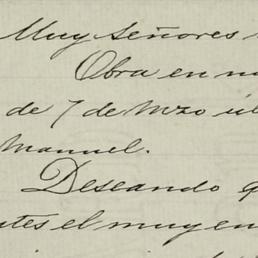 Muy Señores
Obra en
de 7 de Mzo
Manuel.
Deseando
el muy en